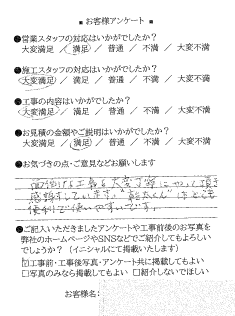 ■ お客様アンケート ■
●営業スタッフの対応はいかがでしたか？
大変満足 ／ 満足 ／ 普通 ／ 不満 ／ 大変不満
●施工スタッフの対応はいかがでしたか？
大変満足 ／ 満足 ／ 普通 ／ 不満 ／ 大変不満
●工事の内容はいかがでしたか？
大変満足 ／ 満足 ／ 普通 ／ 不満 ／ 大変不満
●お見積の金額やご説明はいかがでしたか？
大変満足 ／ 満足 ／ 普通 ／ 不満 ／ 大変不満
●お気づきの点・ご意見などお願いします
面倒な工事を大変丁寧にやって頂き
感謝しています。
便利で使いやすいです。
●ご記入いただきましたアンケートや工事前後のお写真を
弊社のホームページやSNSなどでご紹介してもよろしい
でしょうか？（イニシャルにて掲載いたします）
☑工事前・工事後写真・アンケート共に掲載してもよい
□写真のみなら掲載してもよい □紹介しないでほしい
お客様名：